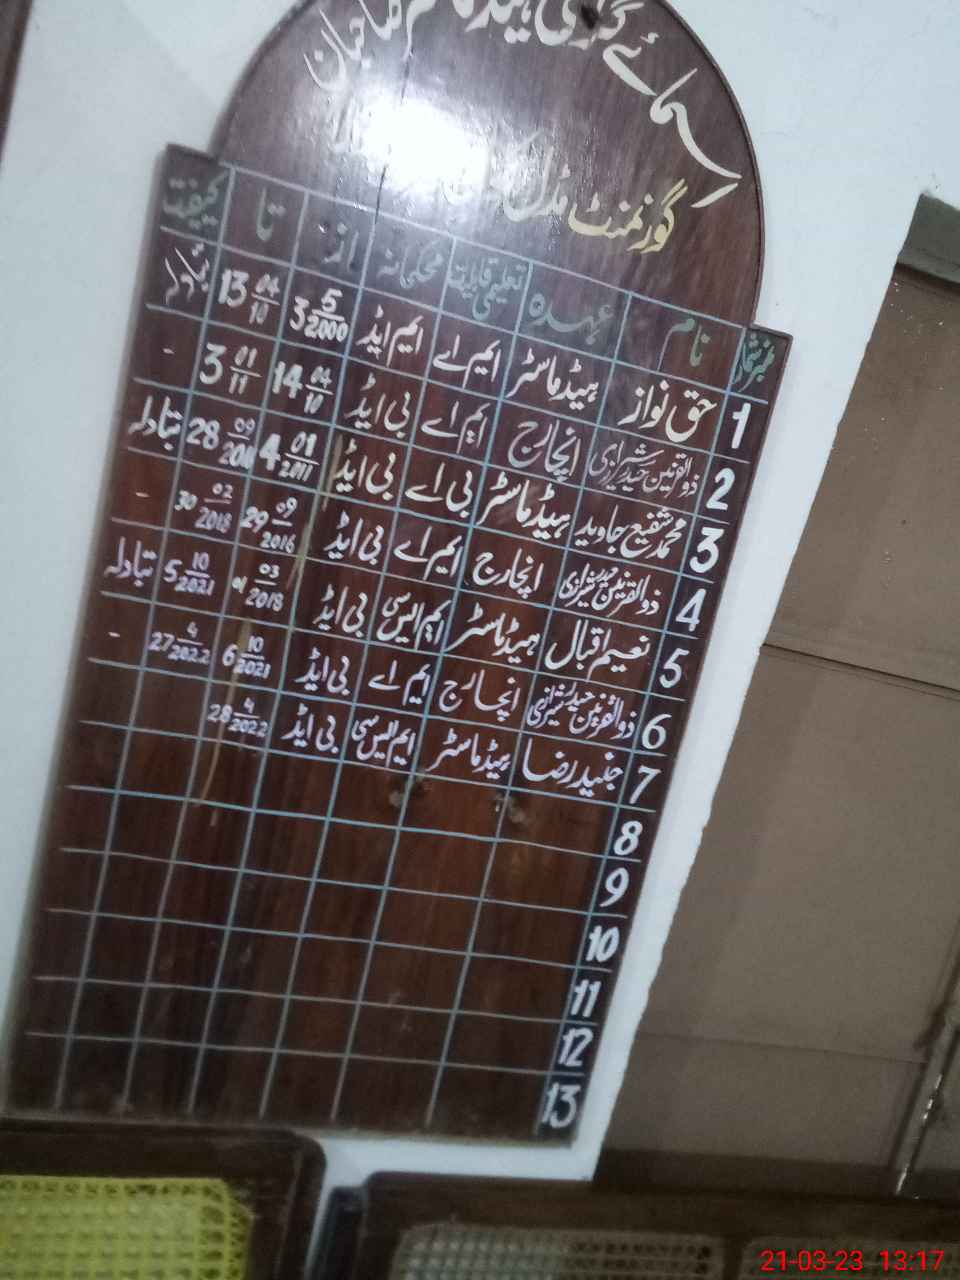 اسمائے گرامی ہیڈماسٹر صاحبان
گورنمنٹ مڈل
نمبر شمار نام عہدہ تعلیمی قابلیت محکمانہ از تا کیفیت
1 حق نواز ہیڈماسٹر ایم اے ایم ایڈ 3 5/2000 13 04/10
2 ذوالقرنین حیدر شیرازی انچارج ایم اے بی ایڈ 14 04/10 3 01/11 -
3 محمد شفیع جاوید ہیڈماسٹر بی اے بی ایڈ 4 01/2011 28 09 تبادلہ
4 ذوالقرنین حیدر شیرازی انچارج ایم اے بی ایڈ 29 09/2016 30 02/2018 -
5 نعیم اقبال ہیڈماسٹر ایم ایس سی بی ایڈ 03/2018 5 10/2021 تبادلہ
6 ذوالقرنین حیدر شیرازی انچارج ایم اے بی ایڈ 6 10/2021 27 4/2022 -
7 جنید رضا ہیڈماسٹر ایم ایس سی بی ایڈ 28 4/2022
8
9
10
11
12
13
21-03-23 13:17